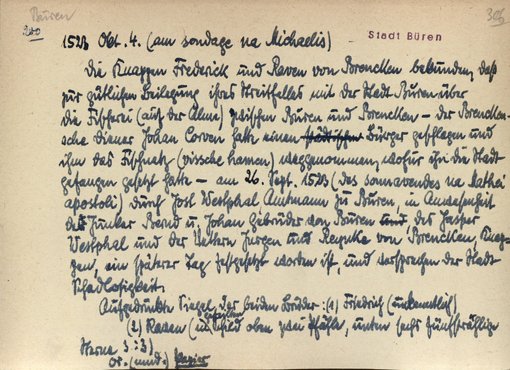 Büren
200
305
Stadt Büren
1523 Okt. 4. (am sondage na Michaelis)
Die Knappen Frederick und Raven von Brencken bekunden, daß
zur gütlichen Beilegung ihres Streitfalles mit der Stadt Büren über
die Fischerei (auf der Alme) zwischen Büren und Brencken – der Brencken-
sche Diener Johan Corven hatte einen städtischen Bürger geschlagen und
ihm das Fischnetz (vissche hamen) weggenommen, wofür ihn die Stadt
gefangen gesetzt hatte – am 26. Sept. 1523 (des sonnavendes na Mathei
apostoli) durch Jost Westphal Amtmann zu Büren, in Anwesenheit
der Junker Bernd u. Johan Gebrüder von Büren und des Jasper
Westphal und der Vettern Jurgen und Reyneke von Brencken, Knap-
pen, ein späterer Tag festgesetzt worden ist, und versprechen der Stadt
Schadlosigkeit.
Aufgedrückte Siegel der beiden Brüder: (1) Friedrich (unkenntlich)
(2) Raven (im gespaltenen Schild oben zwei Pfähle, unten sechs fünfstrahlige
Sterne 3:3)
Or. (mnd.) Papier